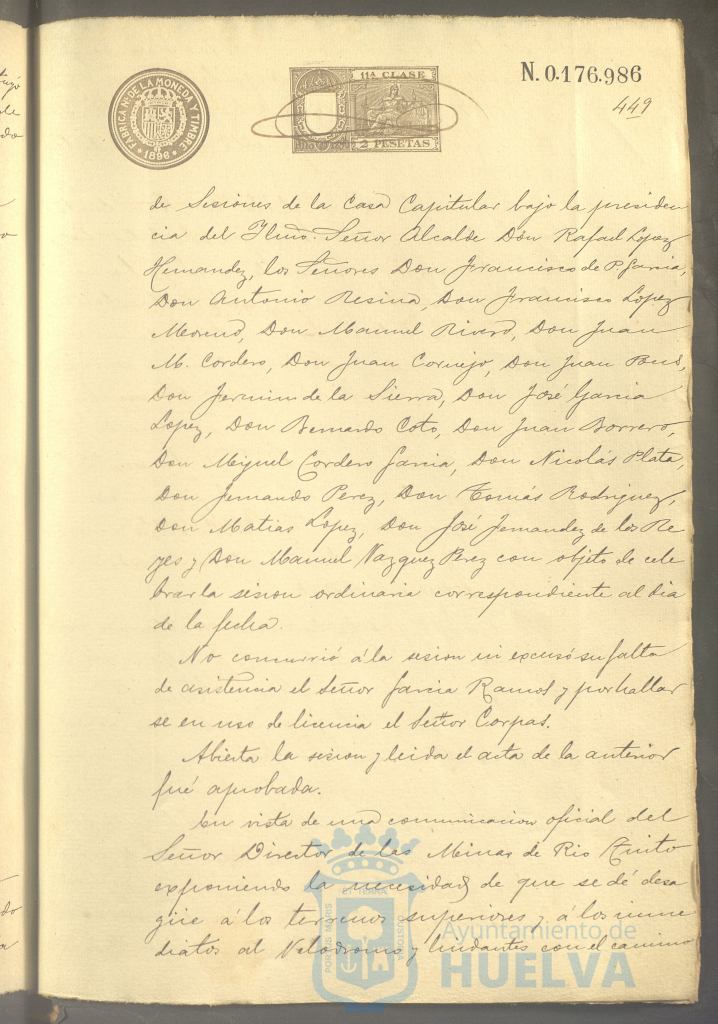 FÁBRICA Nl. DE LA MONEDA Y TIMBRE
1896
11A CLASE
2 PESETAS
N. 0.176.986
449
de Sesiones de la Casa Capitular bajo la presiden
cia del Ilmo. Señor Alcalde Don Rafael Lopez
Hernandez, los Señores Don Francisco de P. Garcia,
Don Antonio Resina, Don Francisco Lopez
Moreno, Don Manuel Rivero, Don Juan
M. Cordero, Don Juan Cornejo, Don Juan Pons,
Don Fermin de la Sierra, Don José Garcia
Lopez, Don Bernardo Coto, Don Juan Borrero,
Don Miguel Cordero Garcia, Don Nicolás Plata,
Don Fernando Perez, Don Tomás Rodriguez,
Don Matias Lopez, Don José Fernandez de los Re
yes y Don Manuel Vazquez Perez con objeto de cele
brar la sesion ordinaria correspondiente al dia
de la fecha.
No concurrió á la sesion ni excusó su falta
de asistencia el Señor Garcia Ramos y por hallar
se en uso de licencia el Señor Corpas.
Abierta la sesion y leida el acta de la anterior
fué aprobada.
En vista de una comunicacion oficial del
Señor Director de las Minas de Rio Tinto
exponiendo la necesidad de que se dé desa
güe á los terrenos superiores y á los inme
diatos al Velodromo y lindantes con el camino
PORTUS MARIS ET TERRAE CUSTODIA
Ayuntamiento de
HUELVA